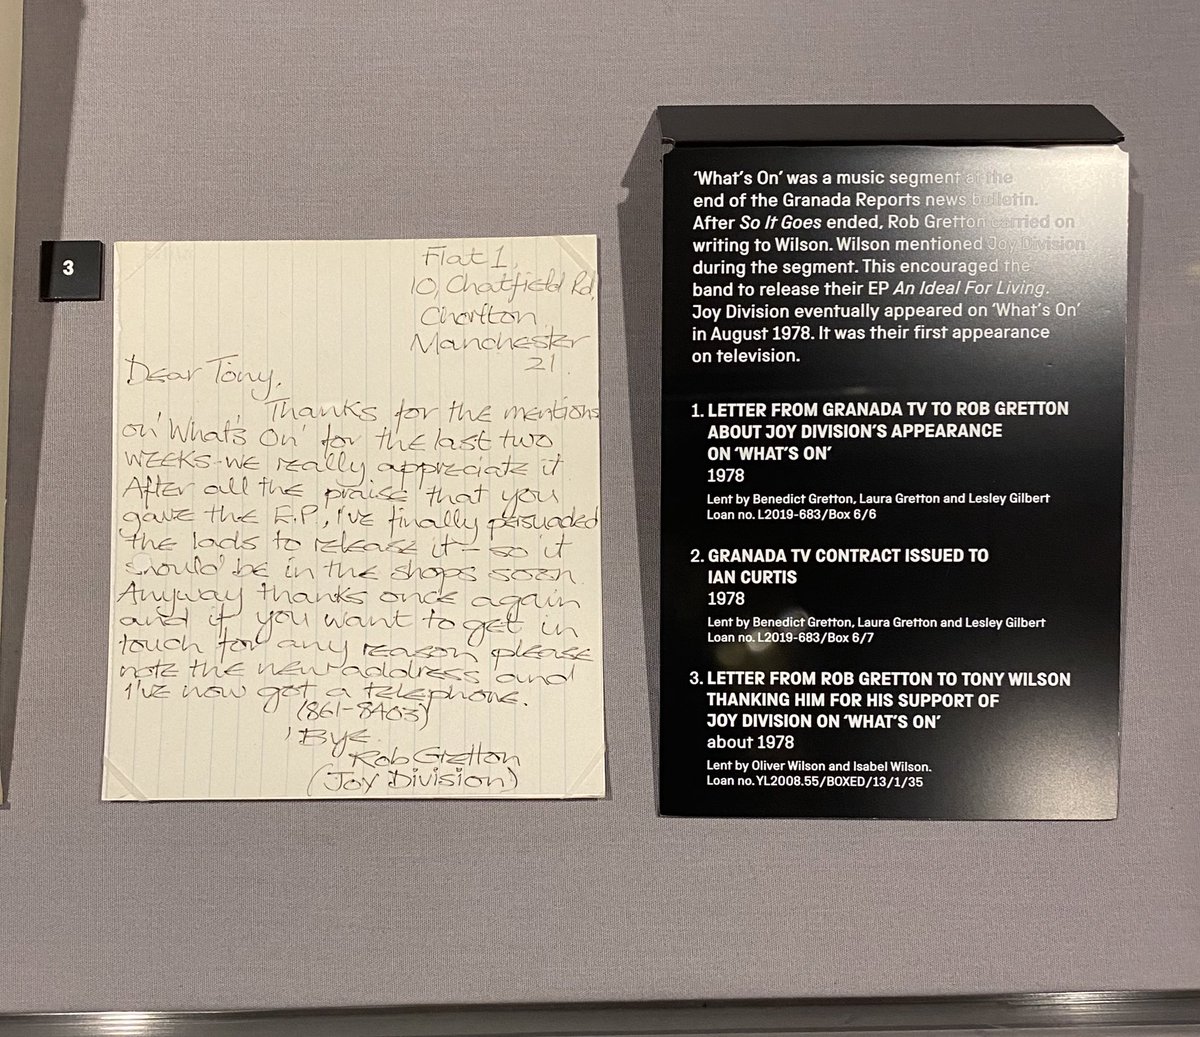 3
Flat 1,
10, Chatfield Rd,
Chorlton
Manchester
21.
Dear Tony,
Thanks for the mentions
on 'What's On' for the last two
weeks - we really appreciate it
After all the praise that you
gave the E.P., I've finally persuaded
the lads to release it - so it
should be in the shops soon.
Anyway thanks once again
and if you want to get in
touch for any reason please
note the new address and
I've now got a telephone.
(861-8403)
'Bye
Rob Gretton
(Joy Division)
‘What’s On’ was a music segment at the
end of the Granada Reports news bulletin.
After So It Goes ended, Rob Gretton carried on
writing to Wilson. Wilson mentioned Joy Division
during the segment. This encouraged the
band to release their EP An Ideal For Living.
Joy Division eventually appeared on ‘What’s On’
in August 1978. It was their first appearance
on television.
1. LETTER FROM GRANADA TV TO ROB GRETTON
ABOUT JOY DIVISION’S APPEARANCE
ON ‘WHAT’S ON’
1978
Lent by Benedict Gretton, Laura Gretton and Lesley Gilbert
Loan no. L2019-683/Box 6/6
2. GRANADA TV CONTRACT ISSUED TO
IAN CURTIS
1978
Lent by Benedict Gretton, Laura Gretton and Lesley Gilbert
Loan no. L2019-683/Box 6/7
3. LETTER FROM ROB GRETTON TO TONY WILSON
THANKING HIM FOR HIS SUPPORT OF
JOY DIVISION ON ‘WHAT’S ON’
about 1978
Lent by Oliver Wilson and Isabel Wilson.
Loan no. YL2008.55/BOXED/13/1/35